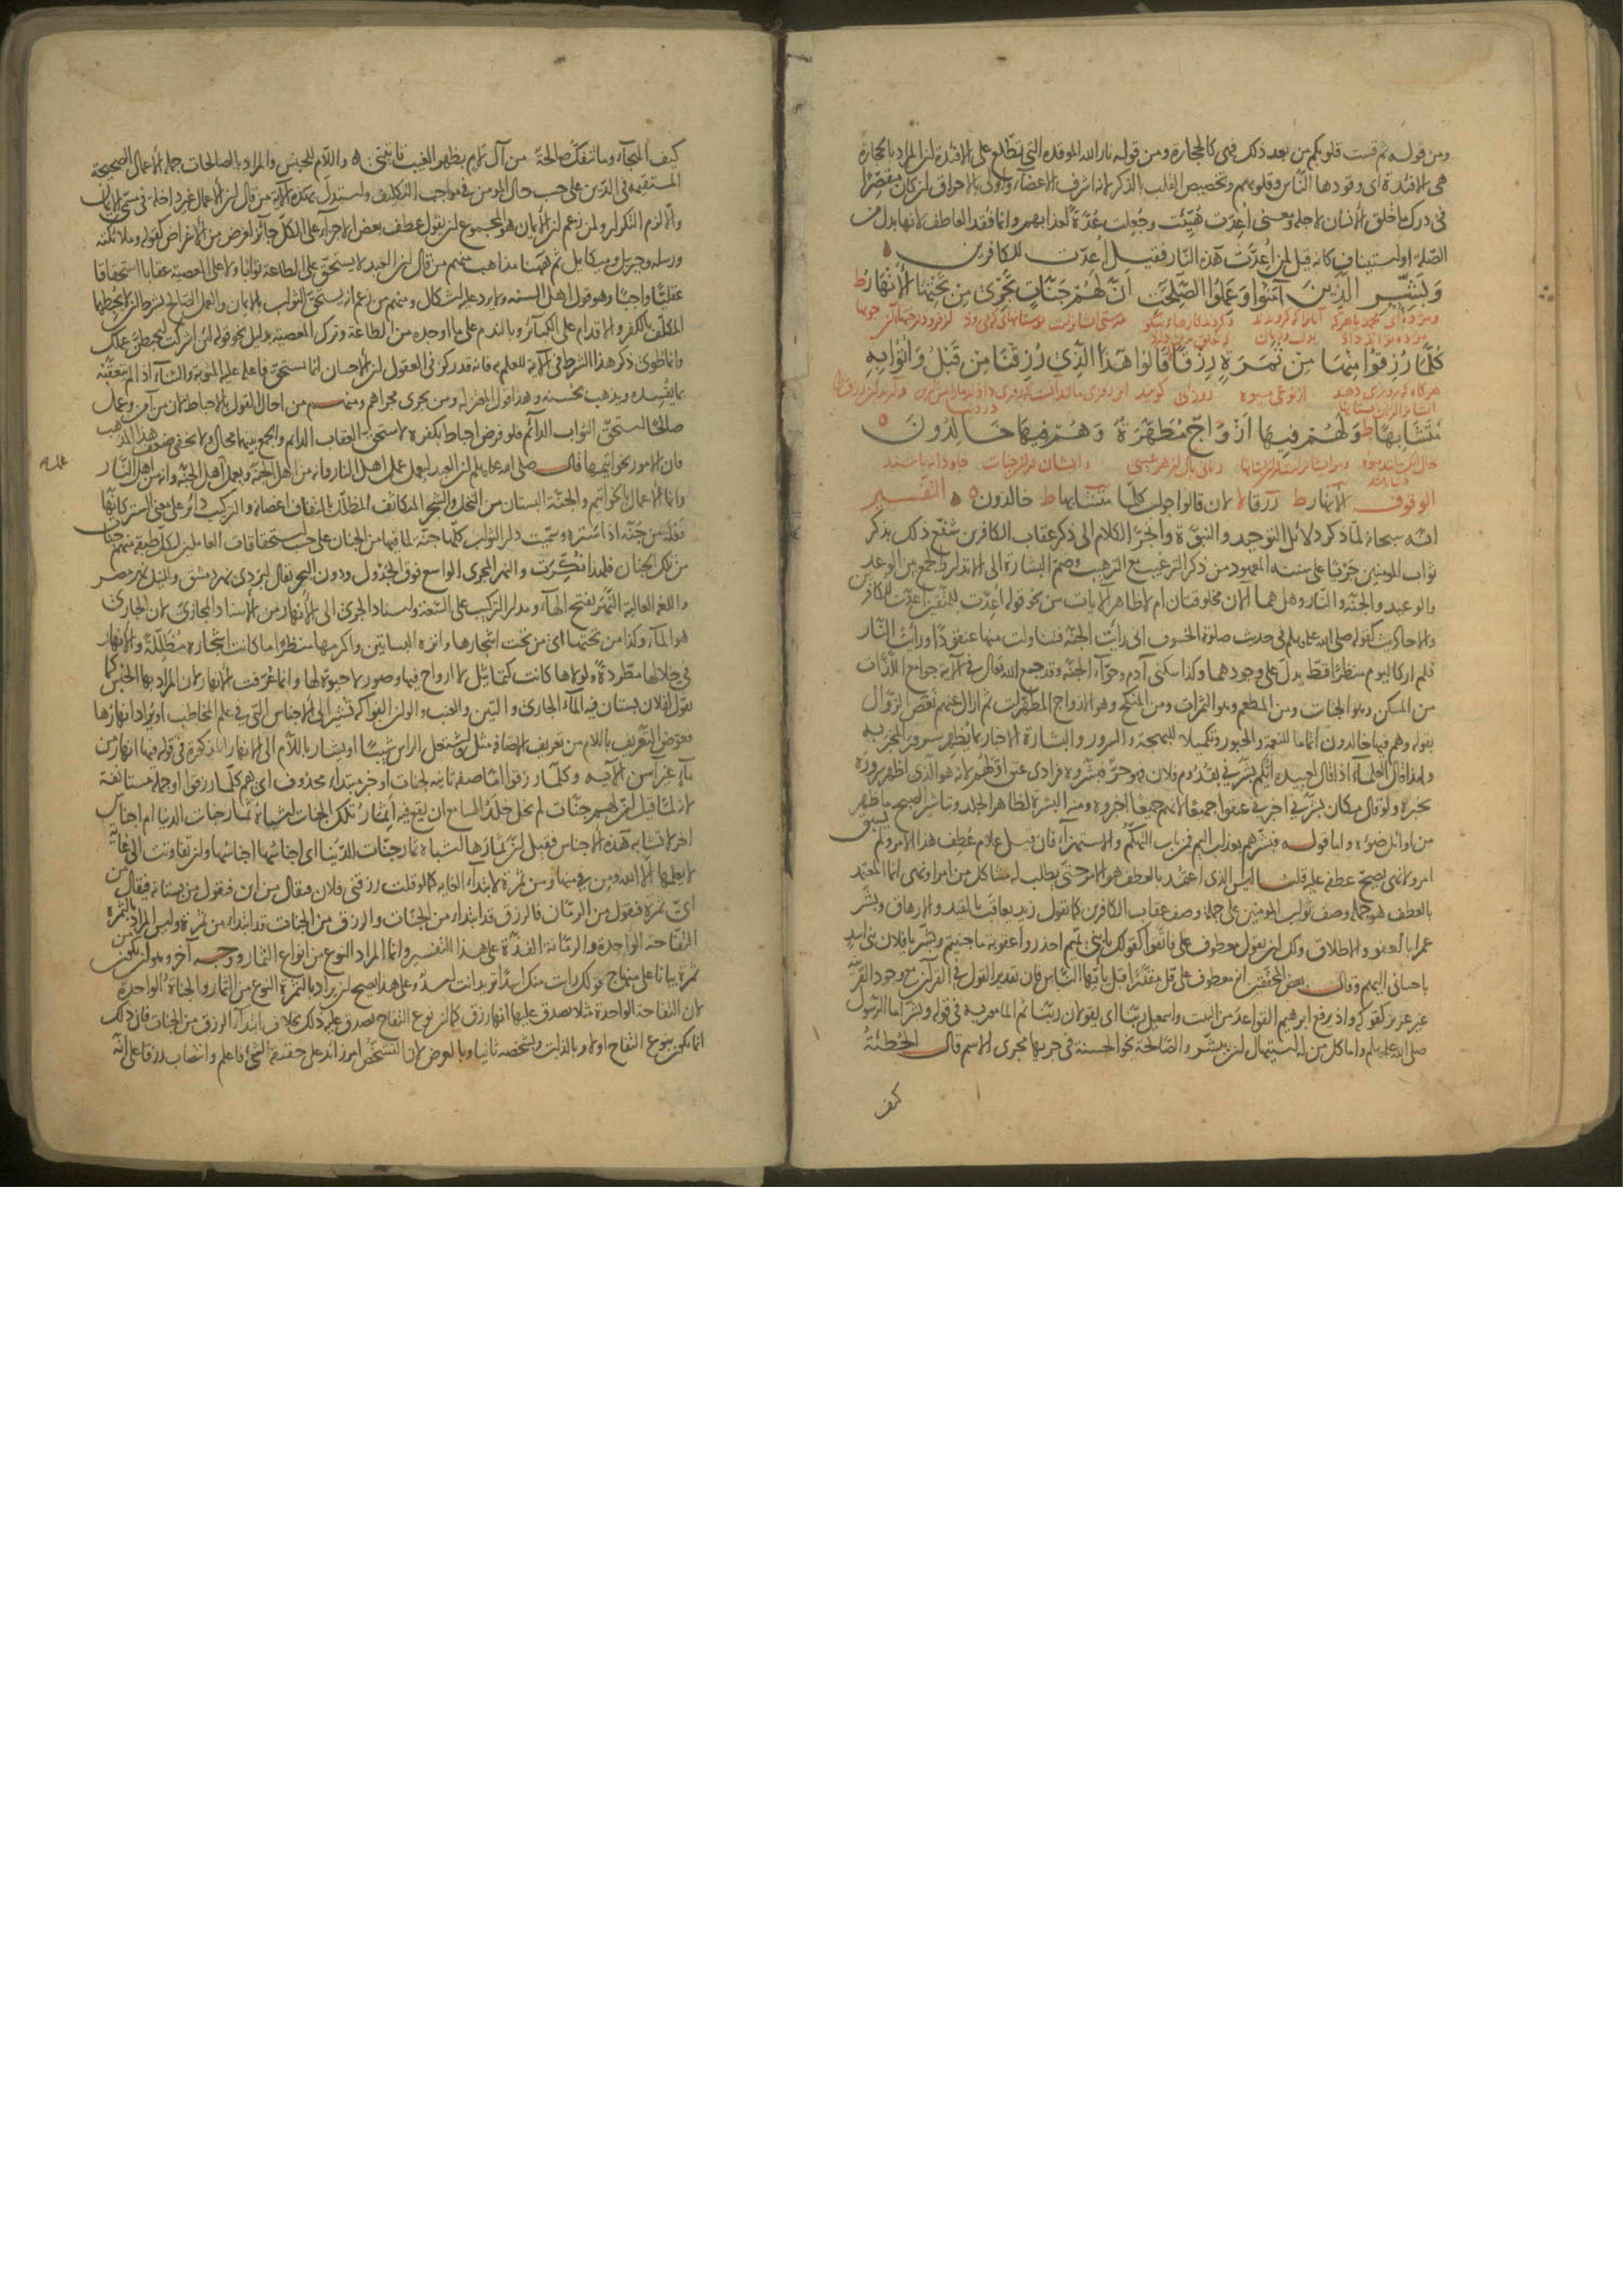 ومن قوله ثم قست قلوبكم من بعد ذلك فهى كالحجارة ومن قوله نار الله الموقدة التى تطلع على الافئدة لن المراد بالحجارة
هى الافئدة اى وقودها الناس وقلوبهم وتخصيص القلب بالذكر لانه اشرف الاعضاء واولى بالاحراق لن كان مقصرا
فى درك ما خلق الانسان لاجله ومعنى اعدت هيئت وجعلت عدة لعذابهم وانما فقد العاطف لانها بدل من
الصلة او استيناف كانه قيل لمن اعدت هذه النار فقيل اعدت للكافرين ٥
وَبَشِّرِ الَّذِينَ آمَنُوا وَعَمِلُوا الصَّلِحَتِ أَنَّ لَهُمْ جَنَّاتٍ تَجْرِى مِنْ تَحْتِهَا الأَنْهَارُ ط
كُلَّمَا رُزِقُوا مِنْهَا مِنْ ثَمَرَةٍ رِزْقًا قَالُوا هَذَا الَّذِى رُزِقْنَا مِنْ قَبْلُ وَأُتُوا بِهِ
مُتَشَابِهًا ط وَلَهُمْ فِيهَا أَزْوَاجٌ مُطَهَّرَةٌ وَهُمْ فِيهَا خَالِدُونَ ٥
الوقوف الانهار ط رزقا لا لان قالوا جواب كلما متشابها ط خالدون ٥ التفسير
انه سبحانه لما ذكر دلائل التوحيد والنبوة وانجر الكلام الى ذكر عقاب الكافرين شفع ذلك بذكر
ثواب المومنين جريا على سننه المعهود من ذكر الترغيب مع الترهيب وضم البشارة الى الانذار والجمع بين الوعد
والوعيد والجنة والنار وهل هما الان مخلوقتان ام لا ظاهر الايات من نحو قوله اعدت للمتقين اعدت للكافرين
والاحاديث كقوله صلى الله عليه وسلم فى حديث صلوة الخسوف انى رأيت الجنة فتناولت منها عنقودا ورأيت النار
فلم ار كاليوم منظرا قط يدل على وجودهما وكذا سكنى آدم وحواء الجنة وقد جمع الله تعالى فى الاية جوامع اللذات
من المسكن وهو الجنات ومن المطعم وهو الثمرات ومن المنكح وهو الازواج المطهرات ثم ازال عنهم نغص الزوال
بقوله وهم فيها خالدون اتماما للنعمة والحبور وتكميلا للبهجة والسرور والبشارة الاخبار بما يظهر سرور المخبر به
ولهذا قال العلماء اذا قال لعبيده ايكم بشرنى بقدوم فلان فهو حر فبشروه فرادى عتق اولهم لانه هو الذى اظهر سروره
بخبره ولو قال مكان بشرنى اخبرنى عتقوا جميعا لانهم جميعا اخبروه ومنه البشرة لظاهر الجلد وتباشير الصبح ما ظهر
من اوائل ضوئه واما قوله فبشرهم بعذاب اليم فمن باب التهكم والاستهزاء فان قيل علام عطف هذا الامر ولم يسبق
امر ولا نهى يصح عطفه عليه قلت ليس الذى اعتمد بالعطف هو الامر حتى يطلب له مشاكل من امر او نهى انما المعتمد
بالعطف هو جملة وصف ثواب المومنين على جملة وصف عقاب الكافرين كما تقول زيد يعاقب بالقيد والارهاق وبشر
عمرا بالعفو والاطلاق ولك ان تقول معطوف على فاتقوا كقولك يا بنى تميم احذروا عقوبة ما جنيتم وبشر يا فلان بنى اسد
باحسانى اليهم وقال بعض المحققين انه معطوف على قل مقدرا قبل يا ايها الناس فان تقدير القول فى القرآن مع وجود القرينة
غير عزيز كقوله واذ يرفع ابرهيم القواعد من البيت واسمعيل ربنا اى يقولان ربنا ثم المامور به فى قوله وبشر اما الرسول
صلى الله عليه وسلم واما كل من له استيهال لن يبشر والصالحة نحو الحسنة فى جريها مجرى الاسم قال الحطيئة
كيف
كيف الهجاء وما تنفك صالحة من آل لام بظهر الغيب تاتينى ٥ واللام للجنس والمراد بالصالحات جملة الاعمال الصحيحة
المستقيمة فى الدين على حسب حال المومن فى مواجب التكليف واستدل بهذه الاية من قال لن الاعمال غير داخلة فى مسمى الايمان
والا لزم التكرار ولمن زعم لن الايمان هو المجموع لن يقول عطف بعض الاجزاء على الكل جائز لغرض من الاغراض كقوله وملائكته
ورسله وجبريل وميكايل ثم ههنا مذاهب منهم من قال لن العبد لا يستحق على الطاعة ثوابا ولا على المعصية عقابا استحقاقا
عقليا واجبا وهو قول اهل السنة ولا يرد عليه اشكال ومنهم من زعم انه يستحق الثواب بالايمان والعمل الصالح بشرط ان لا يحبطهما
المكلف بالكفر والاقدام على الكبائر وبالندم على ما اوجده من الطاعة وترك المعصية بدليل نحو قوله لئن اشركت ليحبطن عملك
وانما طوى ذكر هذا الشرط فى الاية للعلم به فانه قد ركز فى العقول لن الاحسان انما يستحق فاعله عليه المثوبة والثناء اذا لم يتعقبه
بما يفسده ويذهب بحسنه وهذا قول المعتزلة ومن يجرى مجراهم ومنهم من احال القول بالاحباط لان من آمن وعمل
صالحا استحق الثواب الدائم فلو فرض احباط بكفره لاستحق العقاب الدائم والجمع بينهما محال ولا يخفى ضعف هذا المذهب
فان الامور بخواتيمها قال صلى الله عليه وسلم لن العبد ليعمل عمل اهل النار وانه من اهل الجنة ويعمل عمل اهل الجنة وانه من اهل النار
وانما الاعمال بالخواتيم والجنة البستان من النخل والشجر المتكاثف المظلل بالتفاف اغصانه والتركيب دائر على معنى الستر كانها
فعلة من جنه اذا ستره وسميت دار الثواب كلها جنة لما فيها من الجنان على حسب استحقاقات العاملين لكل طبقة منهم جنات
من تلك الجنان فلهذا نكرت والنهر المجرى الواسع فوق الجدول ودون البحر يقال لبردى نهر دمشق وللنيل نهر مصر
واللغة العالية النهر بفتح الهاء ومدار التركيب على السعة واسناد الجرى الى الانهار من الاسناد المجازى لان الجارى
هو الماء وكذا من تحتها اى من تحت اشجارها وانزه البساتين واكرمها منظرا ما كانت اشجاره مظللة والانهار
فى خلالها مطردة ولولاها كانت كتماثيل لا ارواح فيها وصور لا حيوة لها وانما عرفت الانهار لان المراد بها الجنس كما
تقول لفلان بستان فيه الماء الجارى والتين والعنب والوان الفواكه تشير الى الاجناس التى فى علم المخاطب او يراد انهارها
فعوض التعريف باللام من تعريف الاضافة مثل واشتعل الراس شيبا او يشار باللام الى الانهار المذكورة فى قوله فيها انهار من
ماء غير آسن الاية وكلما رزقوا اما صفة ثانية لجنات او خبر مبتداء محذوف اى هم كلما رزقوا او جملة مستانفة
لانه لما قيل لن لهم جنات لم يخل خلد السامع ان يقع فيه اثمار تلك الجنات اشباه ثمار جنات الدنيا ام اجناس
اخر لا تشابه هذه الاجناس فقيل لن ثمارها اشباه ثمار جنات الدنيا اى اجناسها اجناسها ولن تفاوتت الى غاية
لا يعلمها الا الله ومن فى منها ومن ثمرة لابتداء الغاية كما لو قلت رزقنى فلان فيقال من اين فتقول من بستانه فيقال من
اى ثمرة فتقول من الرمان فالرزق قد ابتداء من الجنات والرزق من الجنات قد ابتداء من ثمرة وليس المراد بالثمرة
التفاحة الواحدة والرمانة الفذة على هذا التفسير وانما المراد النوع من انواع الثمار ووجه آخر وهو لن يكون من
ثمرة بيانا على منهاج قولك رايت منك اسدا تريد انت اسد وعلى هذا يصح لن يراد بالثمرة النوع من الثمار والجناة الواحدة
لان التفاحة الواحدة مثلا يصدق عليها انها رزق كما لن نوع التفاح يصدق عليه ذلك بخلاف ابتداء الرزق من الجنات فان ذلك
انما يكون بنوع التفاح اولا وبالذات وبشخصه ثانيا وبالعرض لان التشخص امر زائد على حقيقة الشئ فاعلم وانتصاب رزقا على انه